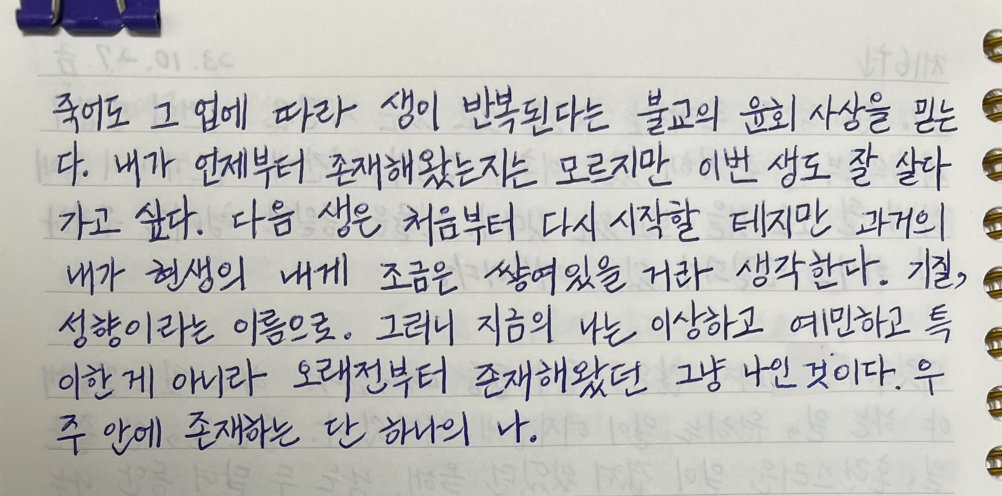 죽어도 그 업에 따라 생이 반복된다는 불교의 윤회 사상을 믿는
다. 내가 언제부터 존재해왔는지는 모르지만 이번 생도 잘 살다
가고 싶다. 다음 생은 처음부터 다시 시작할 테지만 과거의
내가 현생의 내게 조금은 쌓여있을 거라 생각한다. 기질,
성향이라는 이름으로. 그러니 지금의 나는 이상하고 예민하고 특
이한 게 아니라 오래전부터 존재해왔던 그냥 나인 것이다. 우
주 안에 존재하는 단 하나의 나.